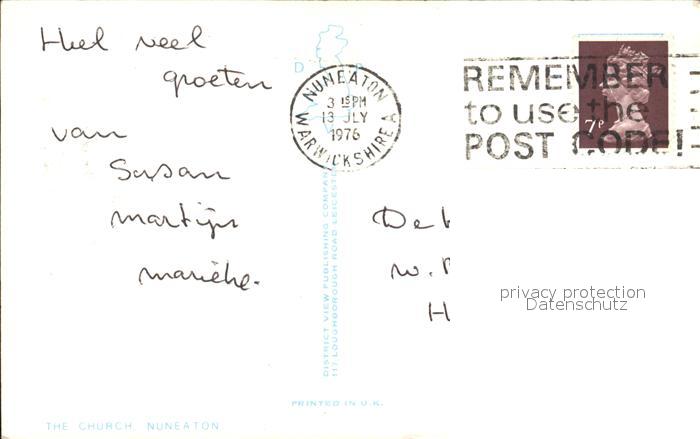 Heel veel
groeten
van
Susan
martijn
marièke.
D P
NUNEATON
3 15 PM
13 JLY
1976
WARWICKSHIRE A
REMEMBER
to use the
POST CODE!
7P
DISTRICT VIEW PUBLISHING COMPANY
117 LOUGHBOROUGH ROAD LEICESTER
De
W.
H
privacy protection
Datenschutz
PRINTED IN U.K.
THE CHURCH, NUNEATON